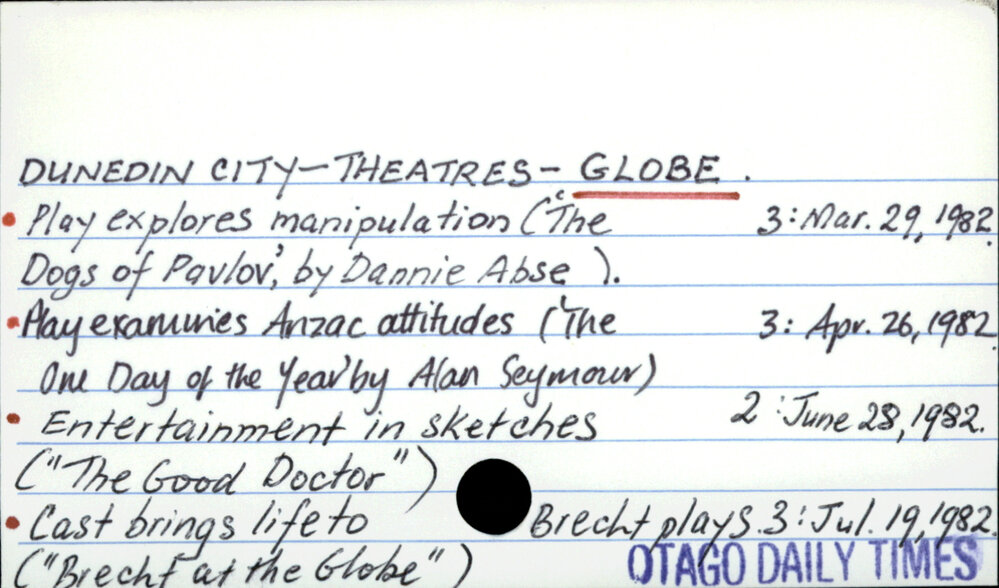 DUNEDIN CITY-THEATRES- GLOBE.
Play explores manipulation ('The 3: Mar. 29, 1982.
Dogs of Pavlov', by Dannie Abse ).
Play examines Anzac attitudes ('The 3: Apr. 26, 1982.
One Day of the Year' by Alan Seymour)
Entertainment in sketches 2: June 28, 1982.
("The Good Doctor")
Cast brings life to Brecht plays. 3: Jul. 19, 1982.
("Brecht at the Globe")
OTAGO DAILY TIMES